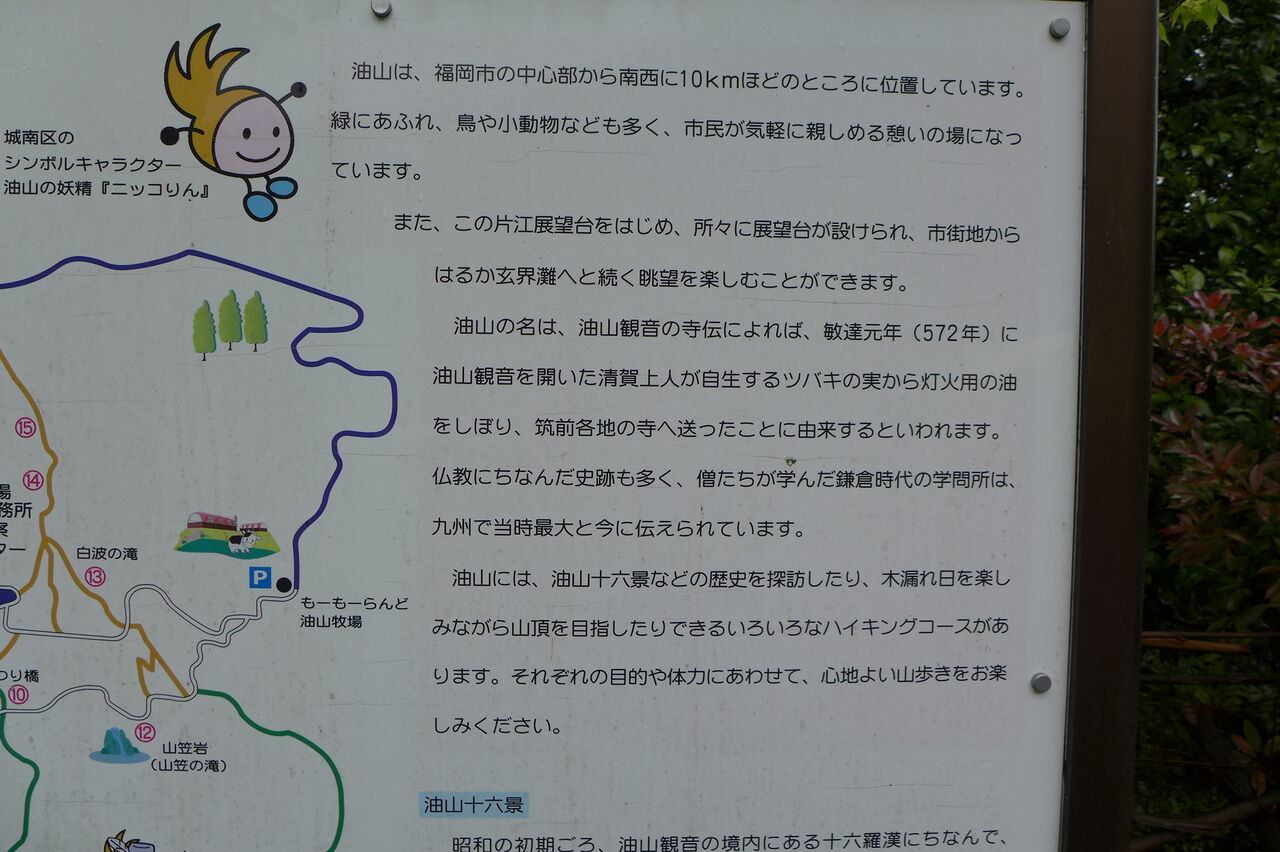 油山は、福岡市の中心部から南西に10kmほどのところに位置しています。
緑にあふれ、鳥や小動物なども多く、市民が気軽に親しめる憩いの場になっ
ています。
また、この片江展望台をはじめ、所々に展望台が設けられ、市街地から
はるか玄界灘へと続く眺望を楽しむことができます。
油山の名は、油山観音の寺伝によれば、敏達元年（572年）に
油山観音を開いた清賀上人が自生するツバキの実から灯火用の油
をしぼり、筑前各地の寺へ送ったことに由来するといわれます。
仏教にちなんだ史跡も多く、僧たちが学んだ鎌倉時代の学問所は、
九州で当時最大と今に伝えられています。
油山には、油山十六景などの歴史を探訪したり、木漏れ日を楽し
みながら山頂を目指したりできるいろいろなハイキングコースがあ
ります。それぞれの目的や体力にあわせて、心地よい山歩きをお楽
しみください。
油山十六景
昭和の初期ごろ、油山観音の境内にある十六羅漢にちなんで、
城南区の
シンボルキャラクター
油山の妖精『ニッコりん』
⑮
⑭
場
務所
ター
白波の滝
⑬
P
もーもーらんど
油山牧場
つり橋
⑩
⑫
山笠岩
（山笠の滝）